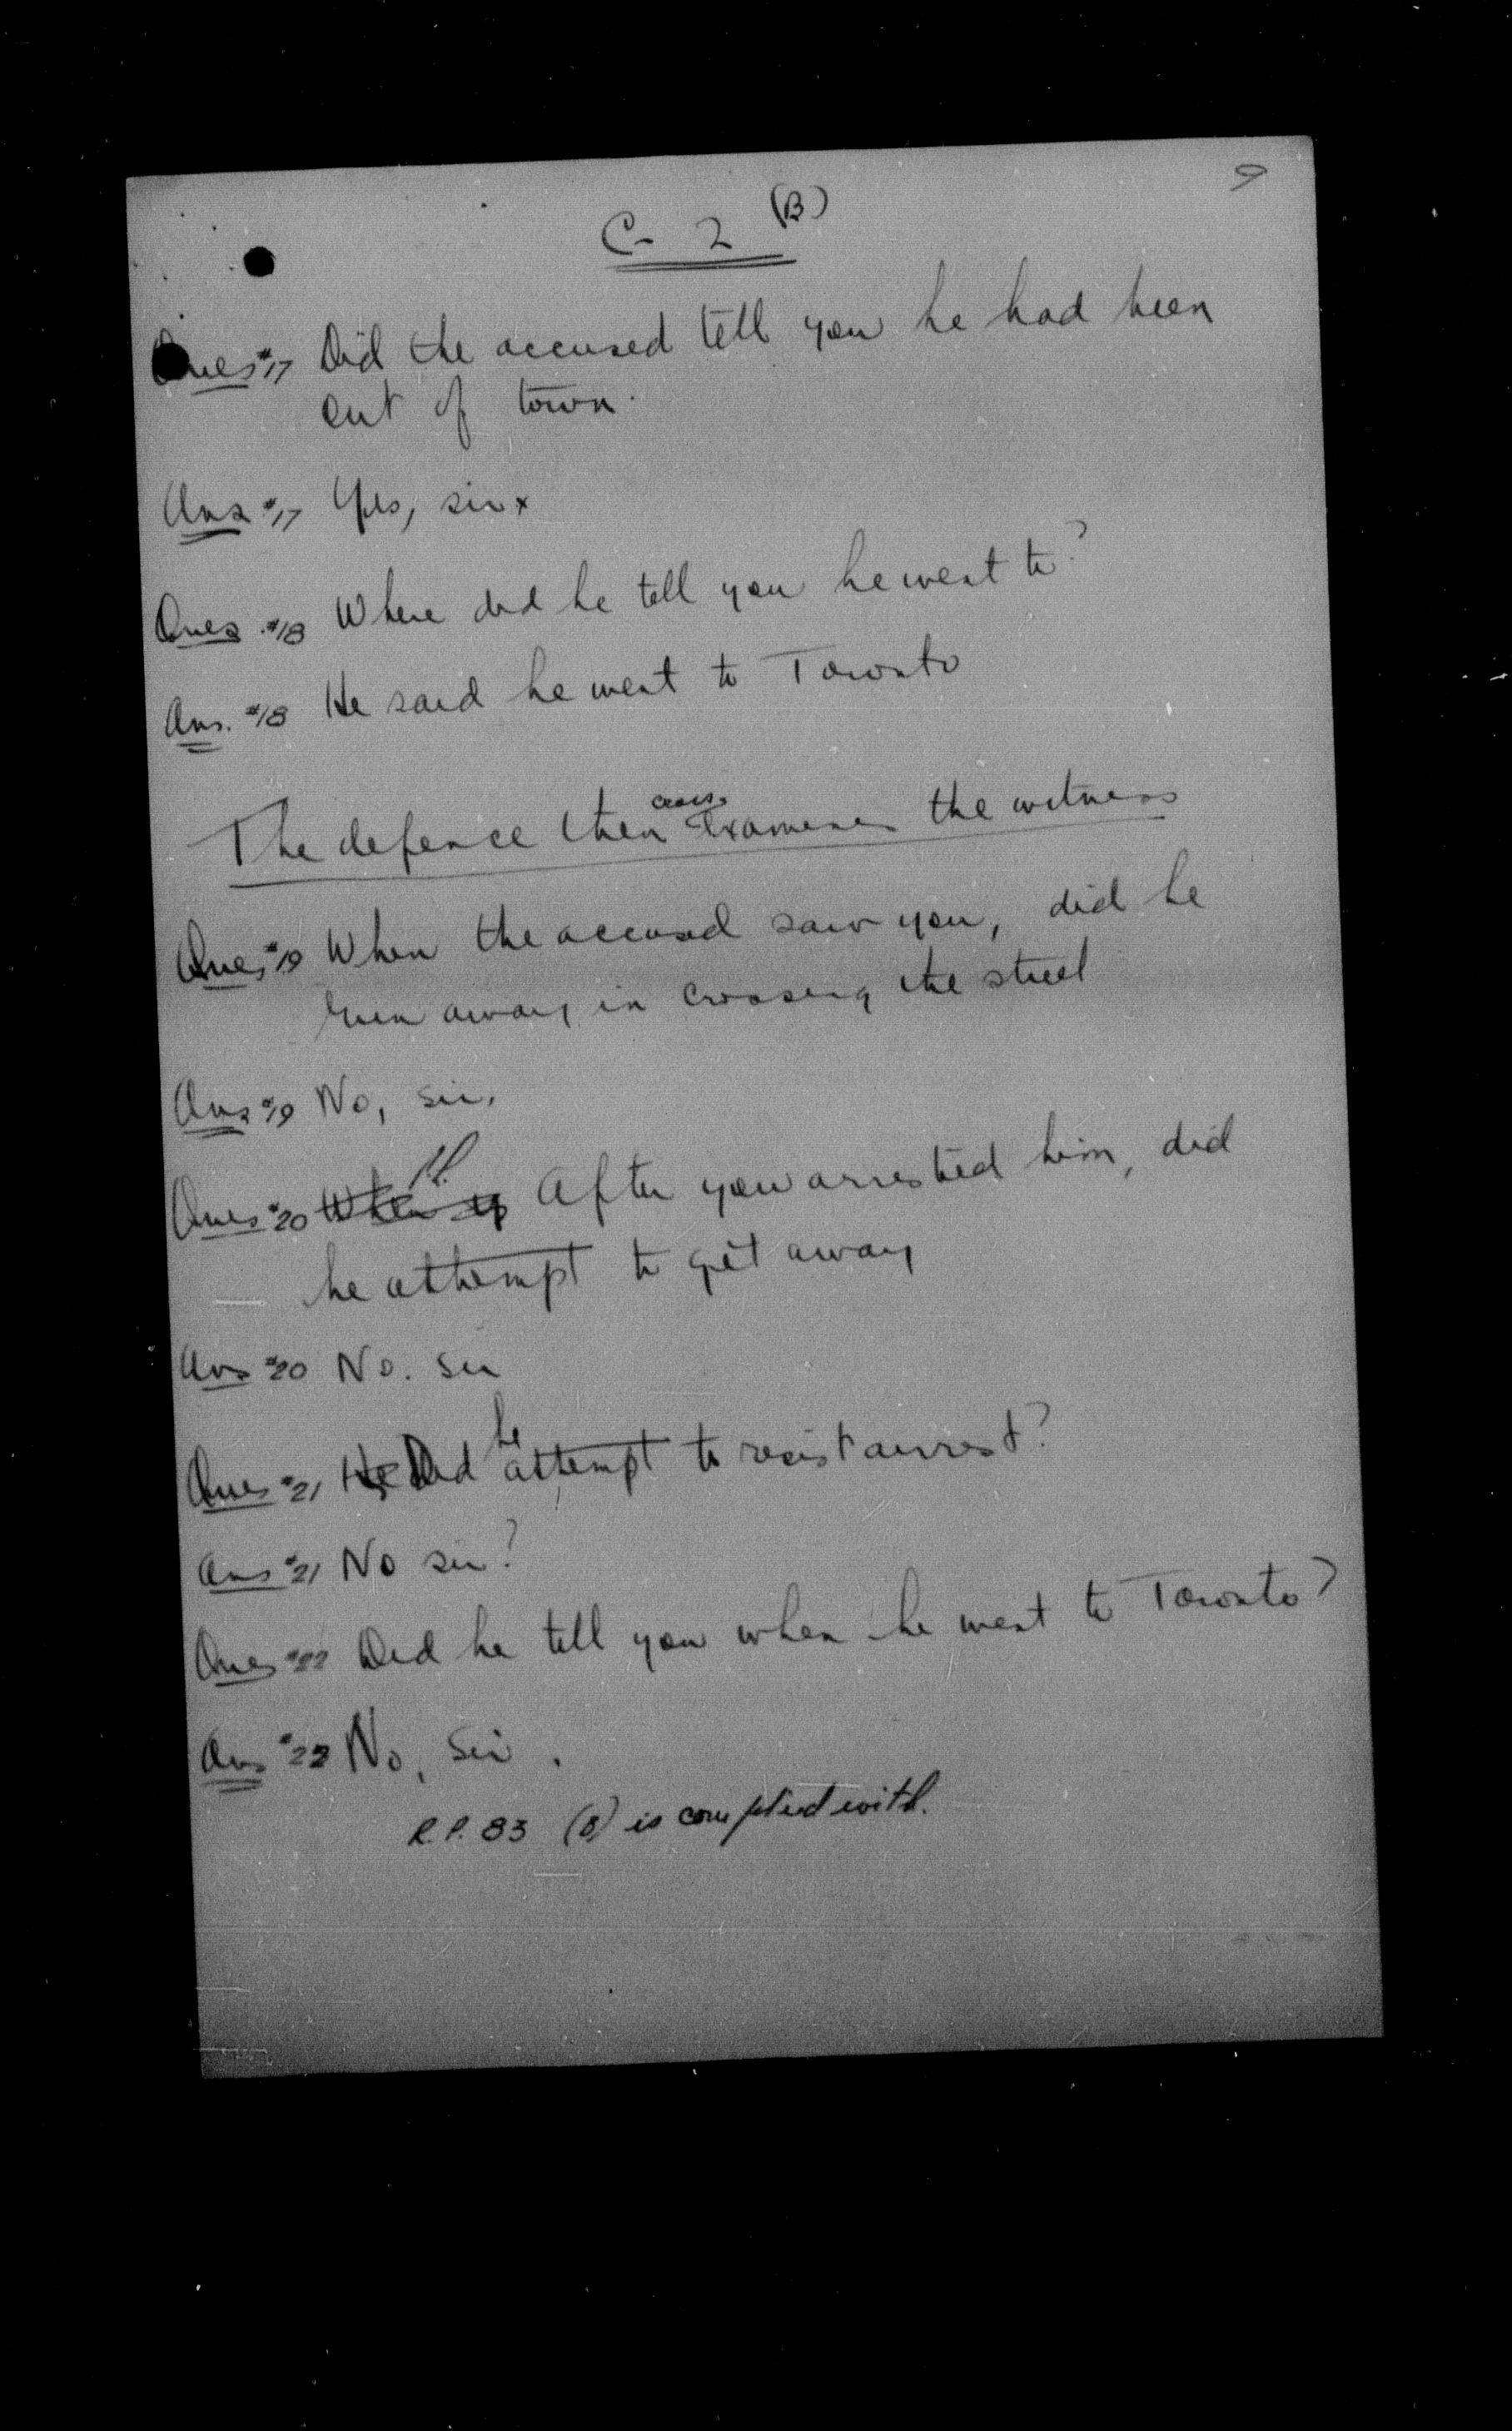 9
C- 2 (B)
Ques #17 Did the accused tell you he had been
out of town.
Ans #17 Yes, sir x
Ques #18 Where did he tell you he went to?
Ans. #18 He said he went to Toronto
cross
The defence then examines the witness
Ques #19 When the accused saw you, did he
run away in crossing the street
Ans #19 No, sir.
Ques #20 When y After you arrested him, did
he attempt to get away
Ans #20 No. sir
he
Ques #21 He Did attempt to resist arrest?
Ans #21 No sir?
Ques #22 Did he tell you when he went to Toronto?
Ans #22 No, sir.
R.P. 83 (B) is complied with.